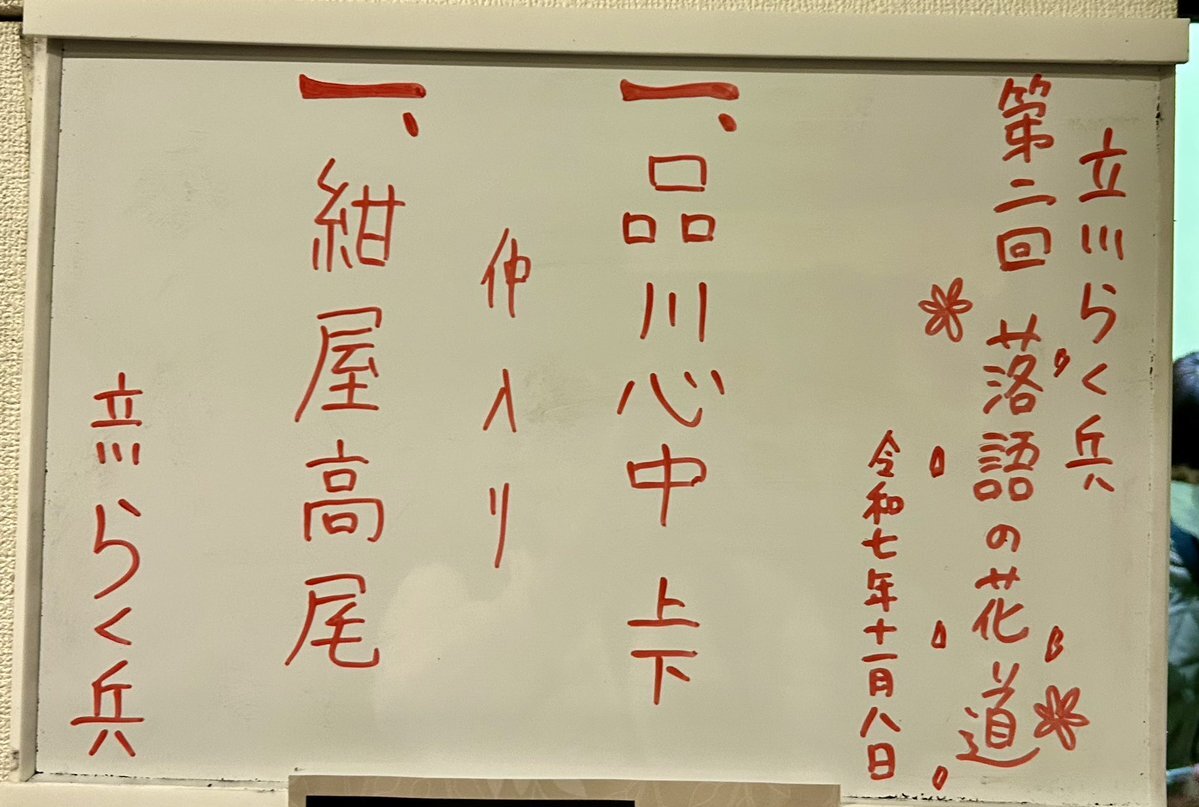 立川らく兵
第二回 落語の花道
令和七年十一月八日
一、品川心中 上下
仲入り
一、紺屋高尾
立川らく兵